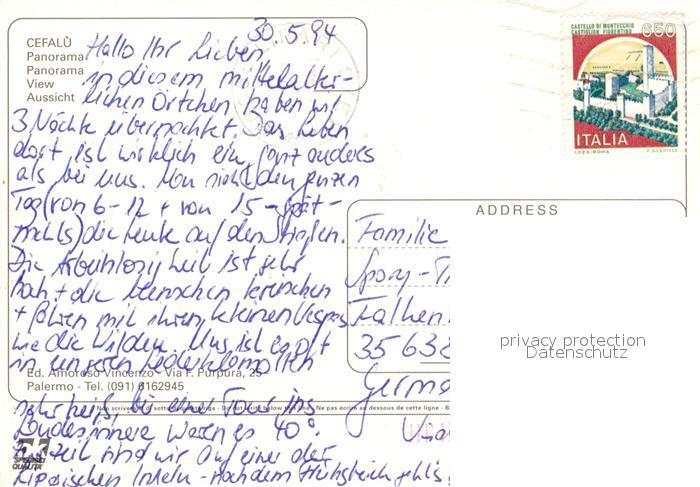 30.5.94
CEFALÙ
Panorama
Panorama
View
Aussicht
Hallo Ihr Lieben,
in diesem mittelalter-
lichen Örtchen haben wir
3 Nächte übernachtet. Das Leben
dort ist wirklich ein ganz anders
als bei uns. Man sieht den ganzen
Tag (von 6-12 + von 15-spät-
nachts) die Leute auf den Straßen.
Die Arbeitslosigkeit ist sehr
hoch + die Menschen
+ fahren mit ihren kleinen Vespas
wie die Wilden. Uns ist es oft
in unseren Lederklamotten
sehr heiß, bei einer Tour ins
Landesinnere waren es 40°.
Zur Zeit sind wir auf einer der
Liparischen Inseln - nach dem Frühstück geht's
Ed. Amoroso Vincenzo - Via F. Purpura, 25
Palermo - Tel. (091) 6162945
Non scrivere sotto - Do not write below - Ne pas écrire au dessous de cette ligne - B
QUALITÀ
CASTELLO DI MONTECCHIO
CASTIGLION FIORENTINO
650
ITALIA
I.P.Z.S.-ROMA
ADDRESS
Familie
Spory-
Falken
35638
Germa
privacy protection
Datenschutz